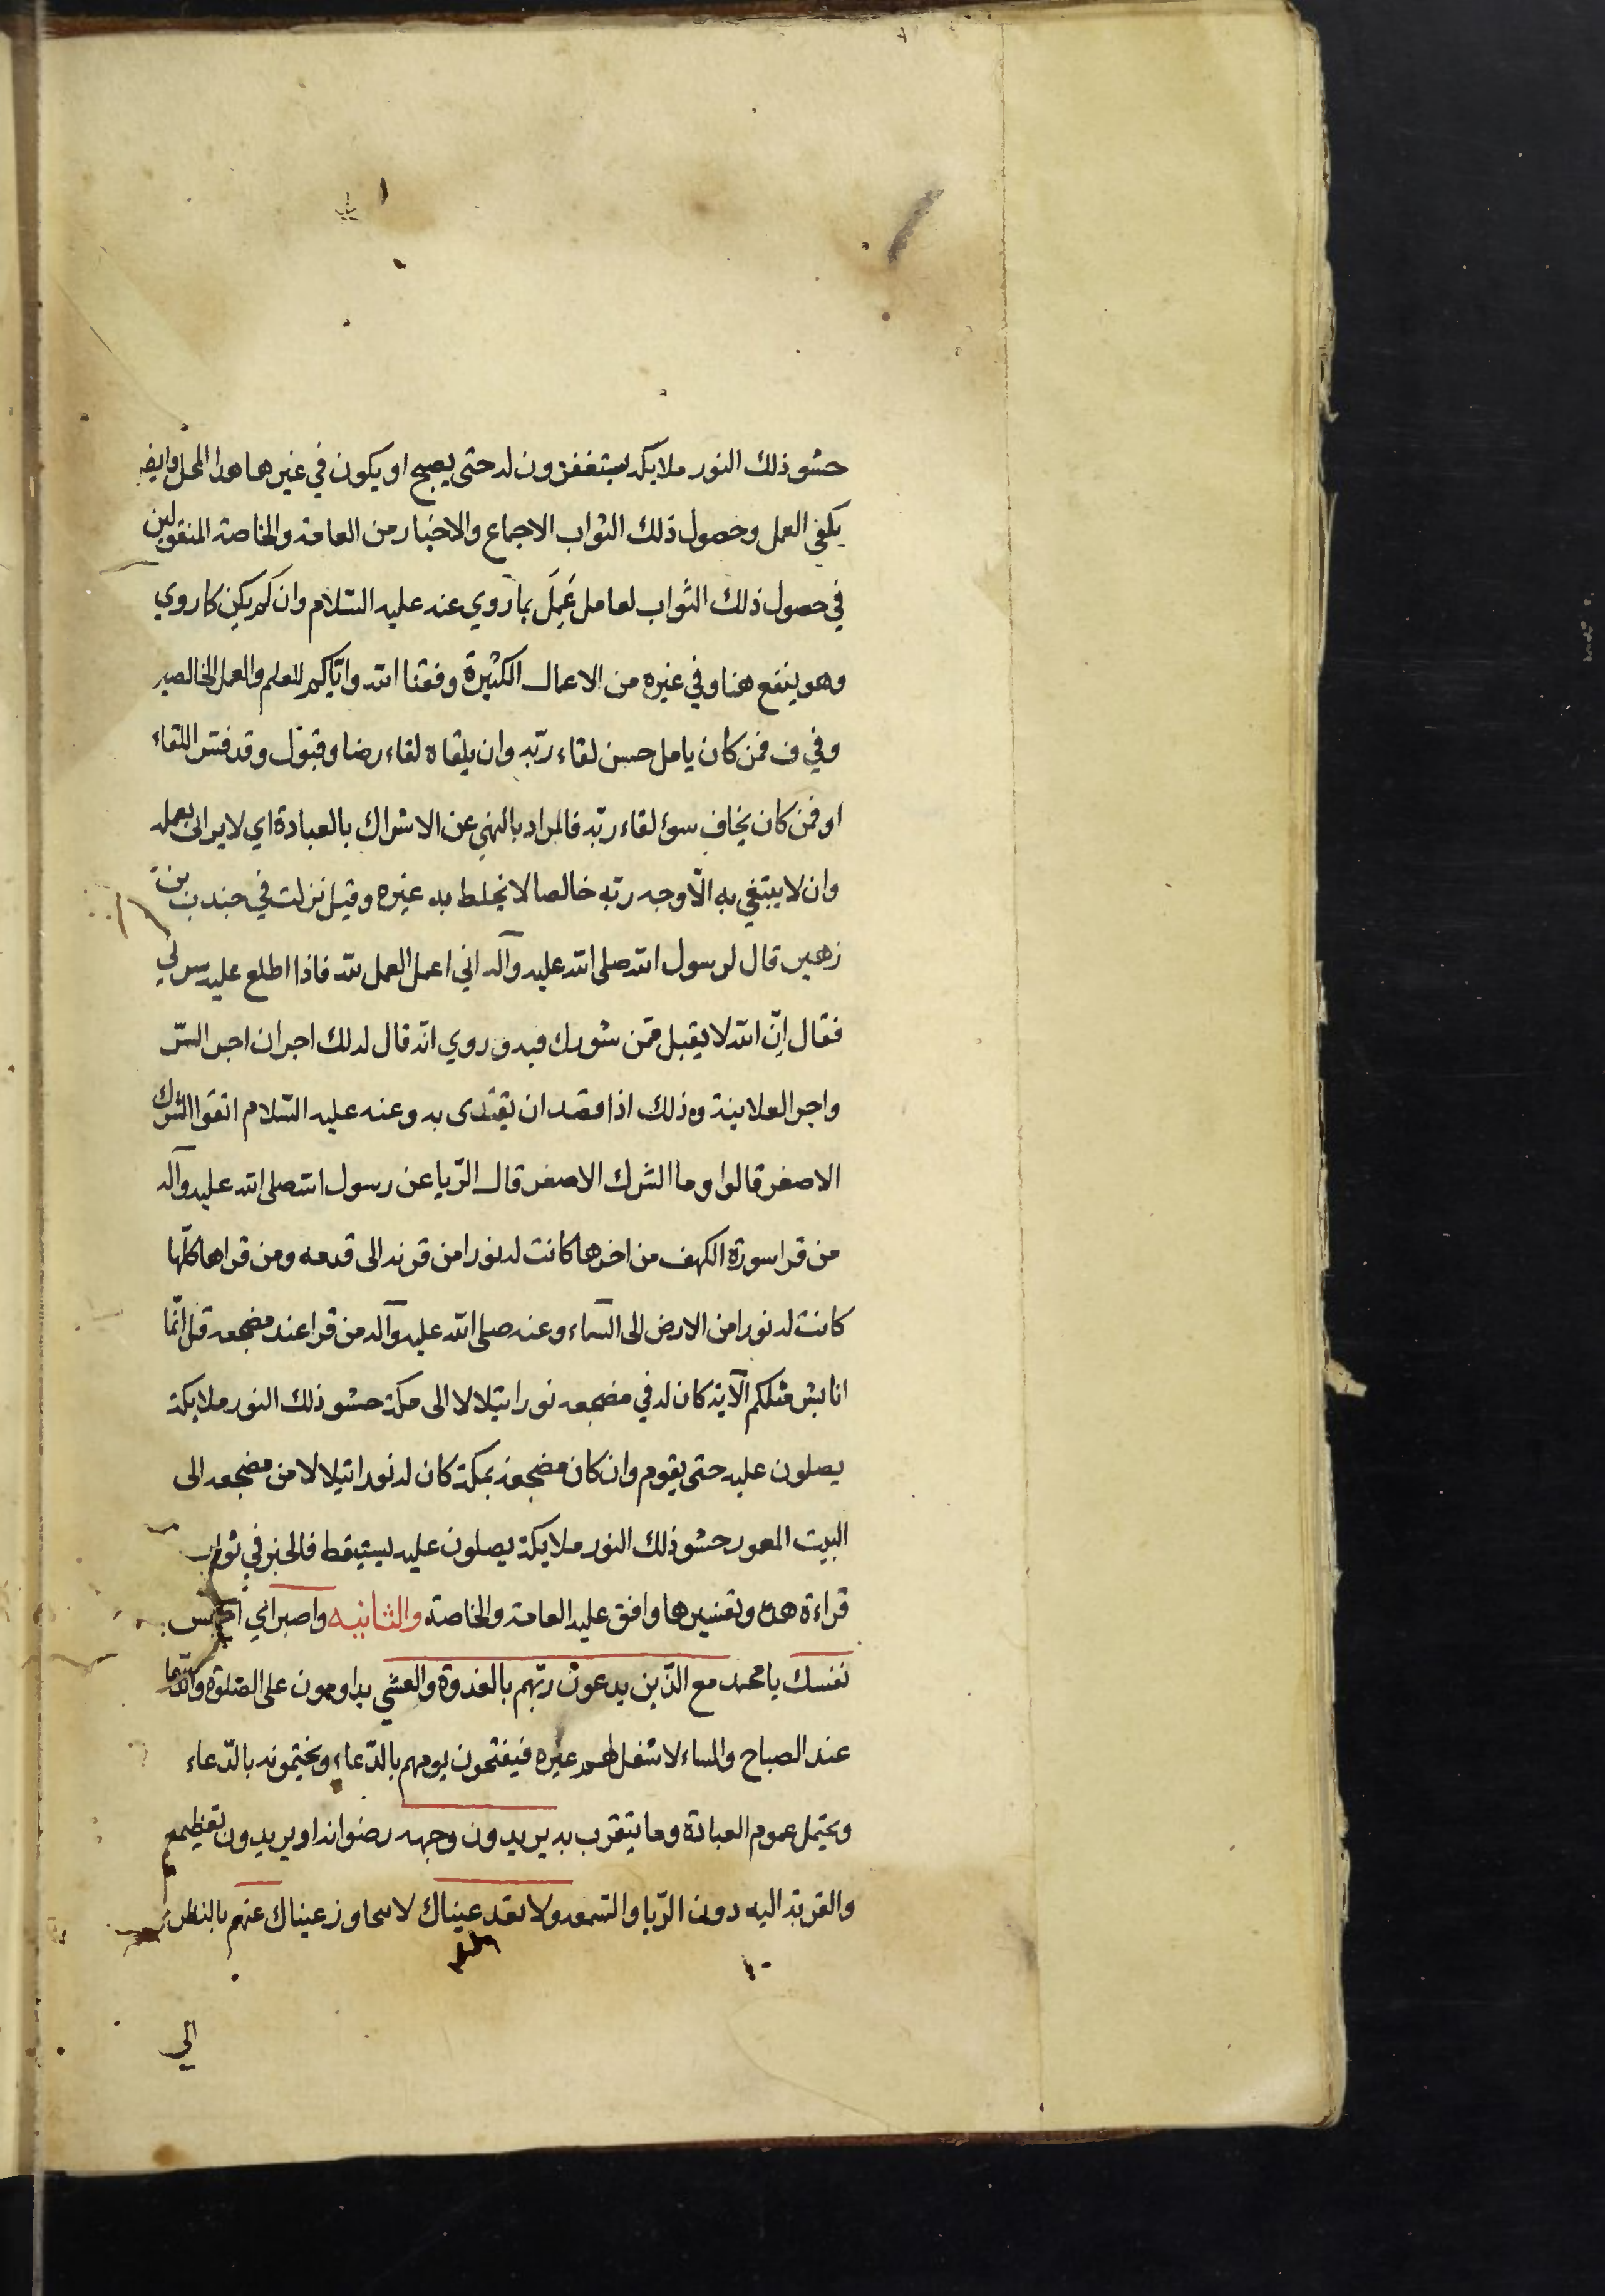 حشو ذلك النور ملايكة يستغفرون له حتى يصبح او يكون في غيرها هذا المحل وايضا
يكفي العمل وحصول ذلك الثواب الاجماع والاخبار من العامة والخاصة المنقولين
في حصول ذلك الثواب لعامل عَمِلَ بما روي عنه عليه السّلام وان لم يكن كما روي
وهو ينفع هنا وفي غيره من الاعمال الكثيرة وفقنا الله واياكم للعلم والعمل الخالصير
وفي ف فمن كان يامل حسن لقاء ربّه وان يلقاه لقاء رضا وقبول وقد فسّر اللقاء
او فمن كان يخاف سوء لقاء ربّه فالمراد بالنهي عن الاشراك بالعبادة اي لا يرائي بعمله
وان لا يبتغي به الّا وجه ربّه خالصا لا يخلط به غيره وقيل نزلت في جندب بن
زهير قال لرسول الله صلى الله عليه وآله اني اعمل العمل لله فاذا اطلع عليه سرني
فقال اِنّ الله لا يقبل ممّن شورك فيه وروي انّه قال له لك اجران اجر السّر
واجر العلانية وذلك اذا قصد ان يقتدى به وعنه عليه السّلام اتقوا الشرك
الاصغر قالوا وما الشرك الاصغر قال الرّيا عن رسول الله صلى الله عليه وآله
من قرا سورة الكهف من اخرها كانت له نورا من قرنه الى قدمه ومن قراها كلّها
كانت له نورا من الارض الى السّماء وعنه صلى الله عليه وآله من قرا عند مضجعه قل انّما
انا بشر مثلكم الآية كان له في مضجعه نورا يتلالا الى مكة حشو ذلك النور ملايكة
يصلون عليه حتى يقوم وان كان مضجعه بمكة كان له نورا يتلالا من مضجعه الى
البيت المعمور حشو ذلك النور ملايكة يصلون عليه ليستيقظ فالخبر في ثواب
قراءة هذه وتفسيرها وافق عليه العامة والخاصة والثانيه واصبر اي احبس
نفسك يا محمد مع الذّين يدعون ربّهم بالغدوة والعشي يداومون على الصّلوة والدّعا
عند الصباح والمساء لا شغل لهم غيره فيفتحون يومهم بالدّعاء ويختمونه بالدّعاء
ويحتمل عموم العبادة وما يتقرب به يريدون وجهه رضوانه او يريدون تعظيمه
والقربة اليه دون الرّيا والسّمعه ولا تعد عيناك لا تتجاوز عيناك عنهم بالنظر
الي